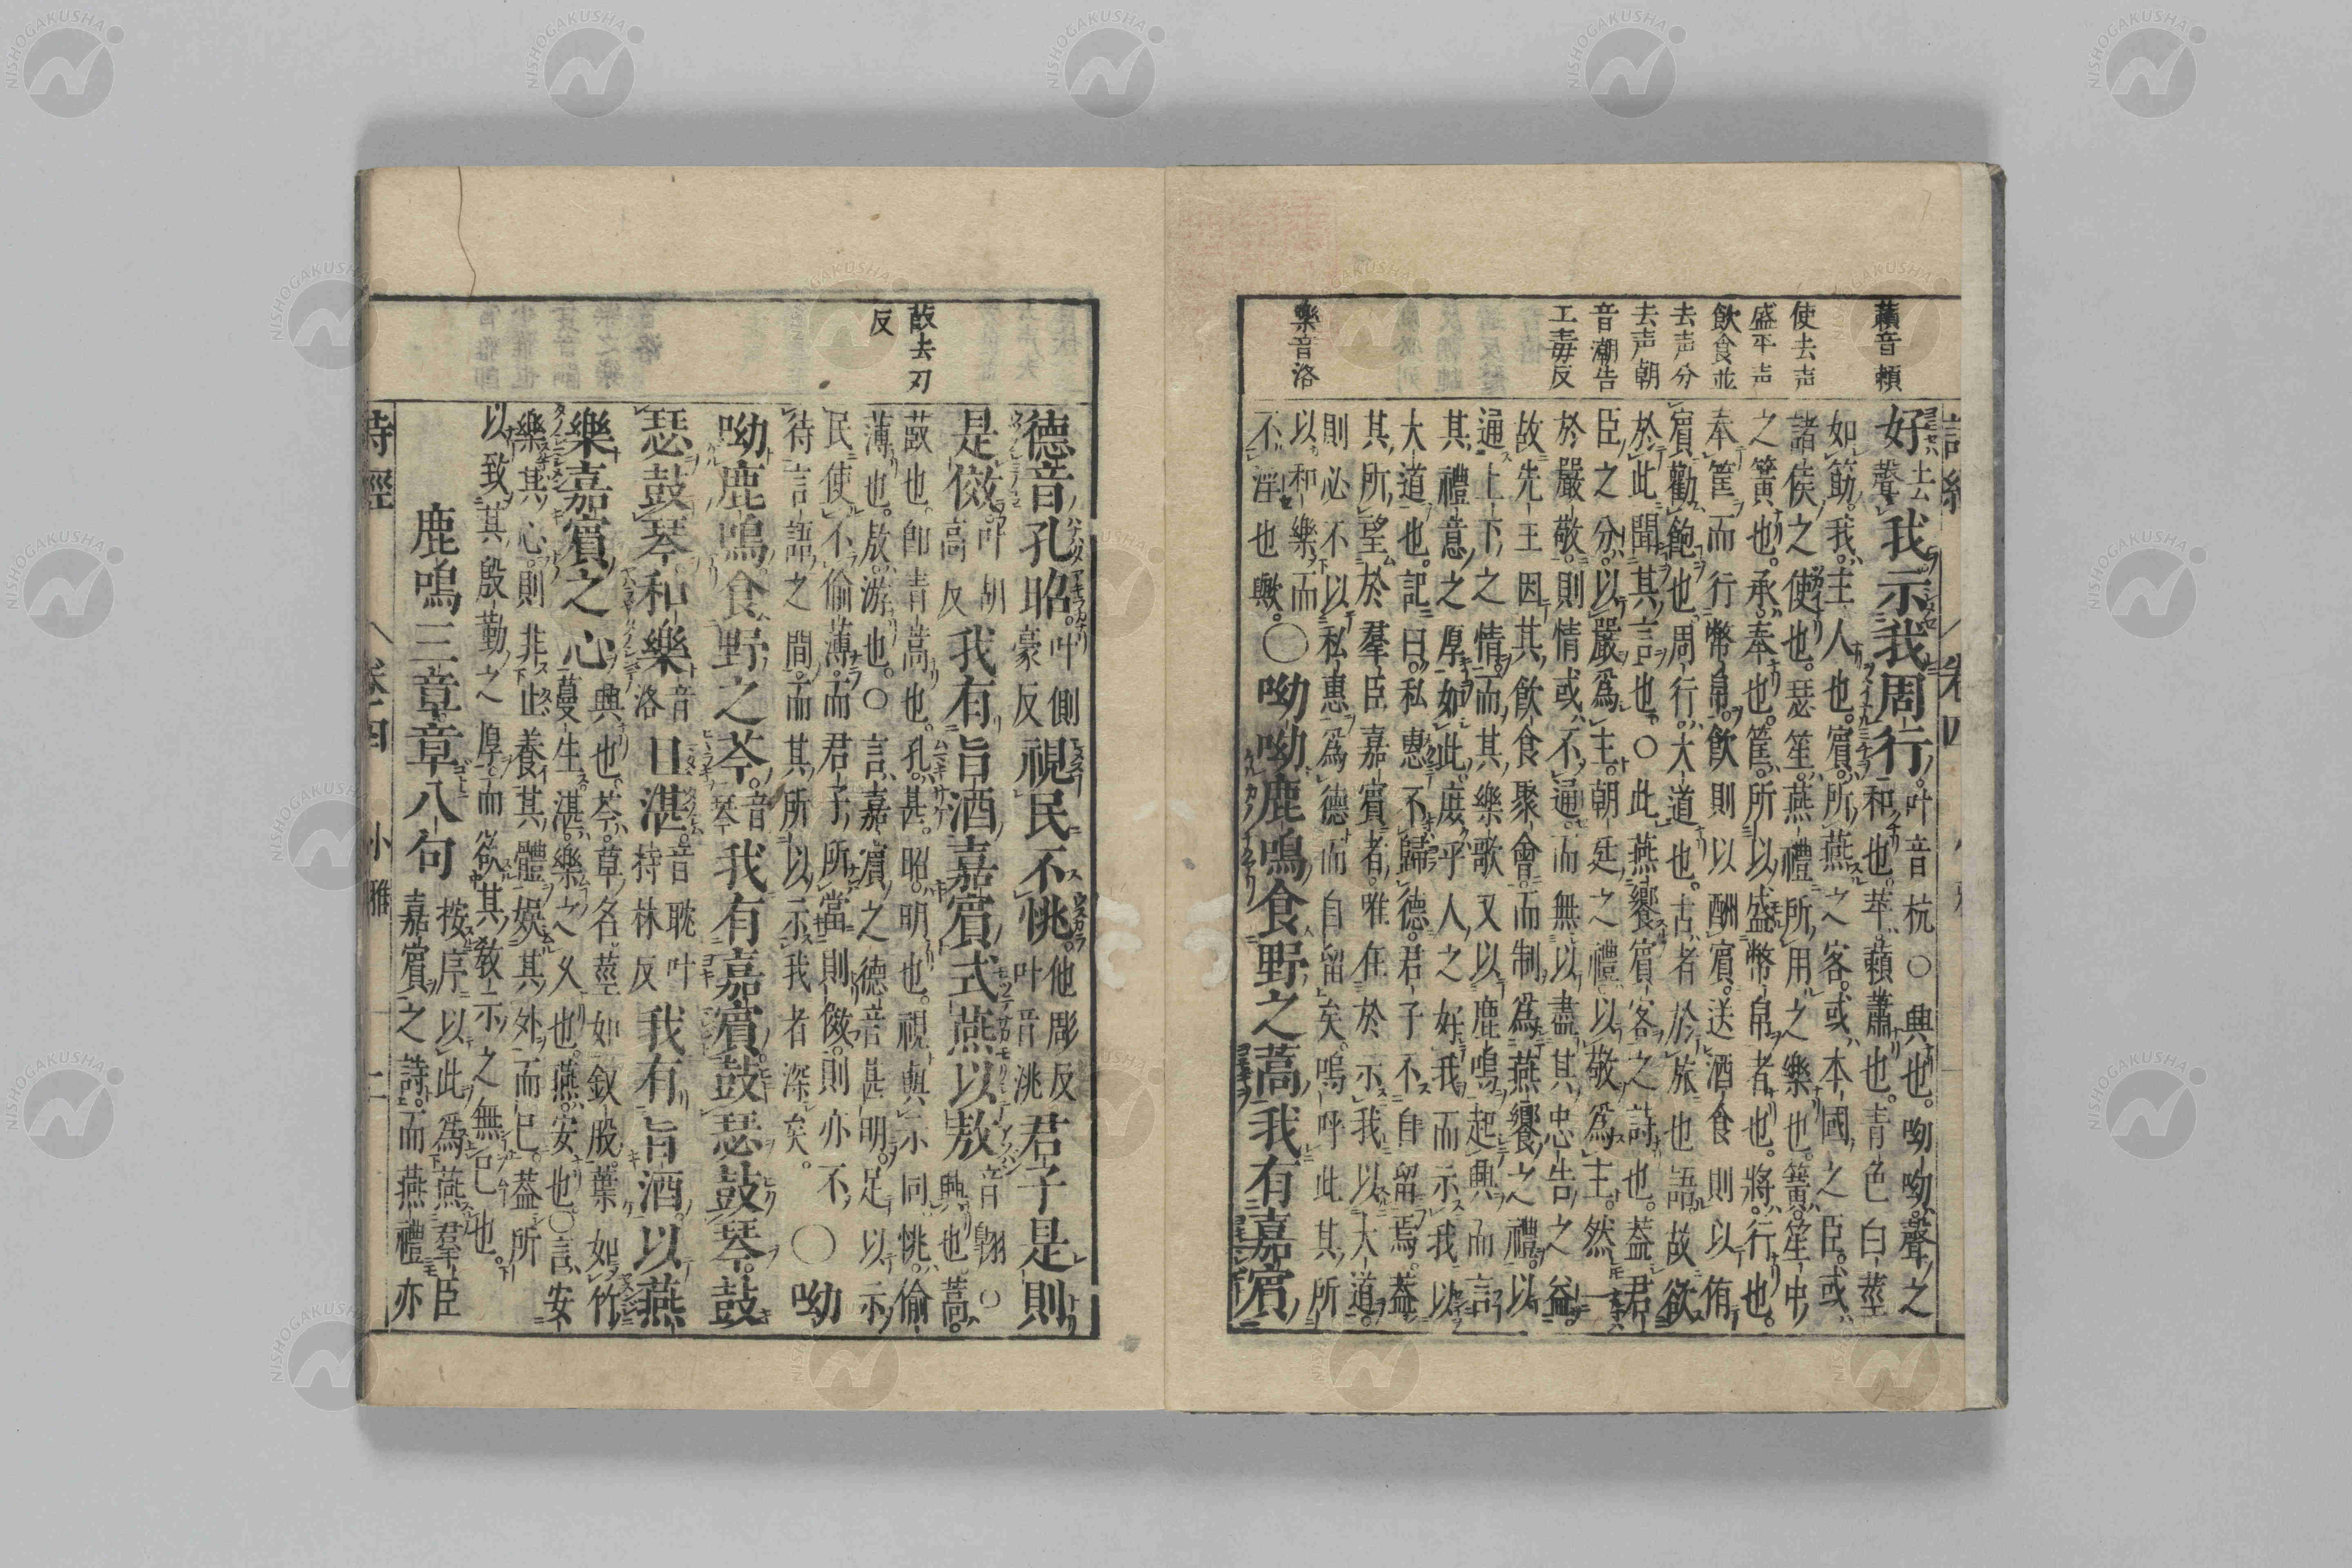 藾音頼
使去声
盛平声
飲食並
去声分
去声朝
音潮告
工毒反
樂音洛
詩經 卷四
好去聲我示我周行。叶音杭○興也。呦呦。聲之
和也。苹。藾蕭也。青色白莖
如筯。我。主人也。賓。所燕之客。或本國之臣。或
諸侯之使也。瑟笙。燕禮所用之樂也。簧。笙中
之簧也。承。奉也。筐。所以盛幣帛者也。將。行也。
奉筐而行幣帛。飲則以酬賓。送酒食則以侑
賓勸飽也。周行。大道也。古者於旅也語故欲
於此聞其言也。○此燕饗賓客之詩也。葢君
臣之分。以嚴爲主。朝廷之禮以敬爲主。然一
於嚴敬。則情或不通。而無以盡其忠告之益。
故先王因其飲食聚會。而制爲燕饗之禮。以
通上下之情。而其樂歌又以鹿鳴起興而言
其禮意之厚如此。庶乎人之好我而示我以
大道也。記曰。私惠不歸德。君子不自留焉。葢
其所望於羣臣嘉賓者。唯在於示我以大道。
則必不以私惠爲德而自留矣。嗚呼此其所
以和樂而
不淫也歟。○呦呦鹿鳴食野之蒿我有嘉賓
菣去刃
反
德音孔昭。叶側豪反視民不恌。他彫反叶音洮君子是則
是傚。叶胡高反我有旨酒嘉賓式燕以敖音翺○興也。蒿。
菣也。卽青蒿也。孔。甚。昭。明也。視與示同。恌。偷
薄也。敖。游也。○言嘉賓之德音甚明。足以示
民使不偷薄。而君子所當則傚。則亦不
待言語之間。而其所以示我者深矣。○呦
呦鹿鳴食野之芩。音琴我有嘉賓鼓瑟鼓琴。鼓
瑟鼓琴。和樂音洛且湛。音耽叶持林反我有旨酒。以燕
樂嘉賓之心興也。芩。草名莖如釵股。葉如竹
蔓生。湛。樂之久也。燕。安也○言安
樂其心。則非止養其體娯其外而已。葢所
以致其殷勤之厚。而欲其敎示之無已也。
鹿鳴三章章八句 按序以此爲燕羣臣
嘉賓之詩。而燕禮亦
詩經 卷四 小雅 二